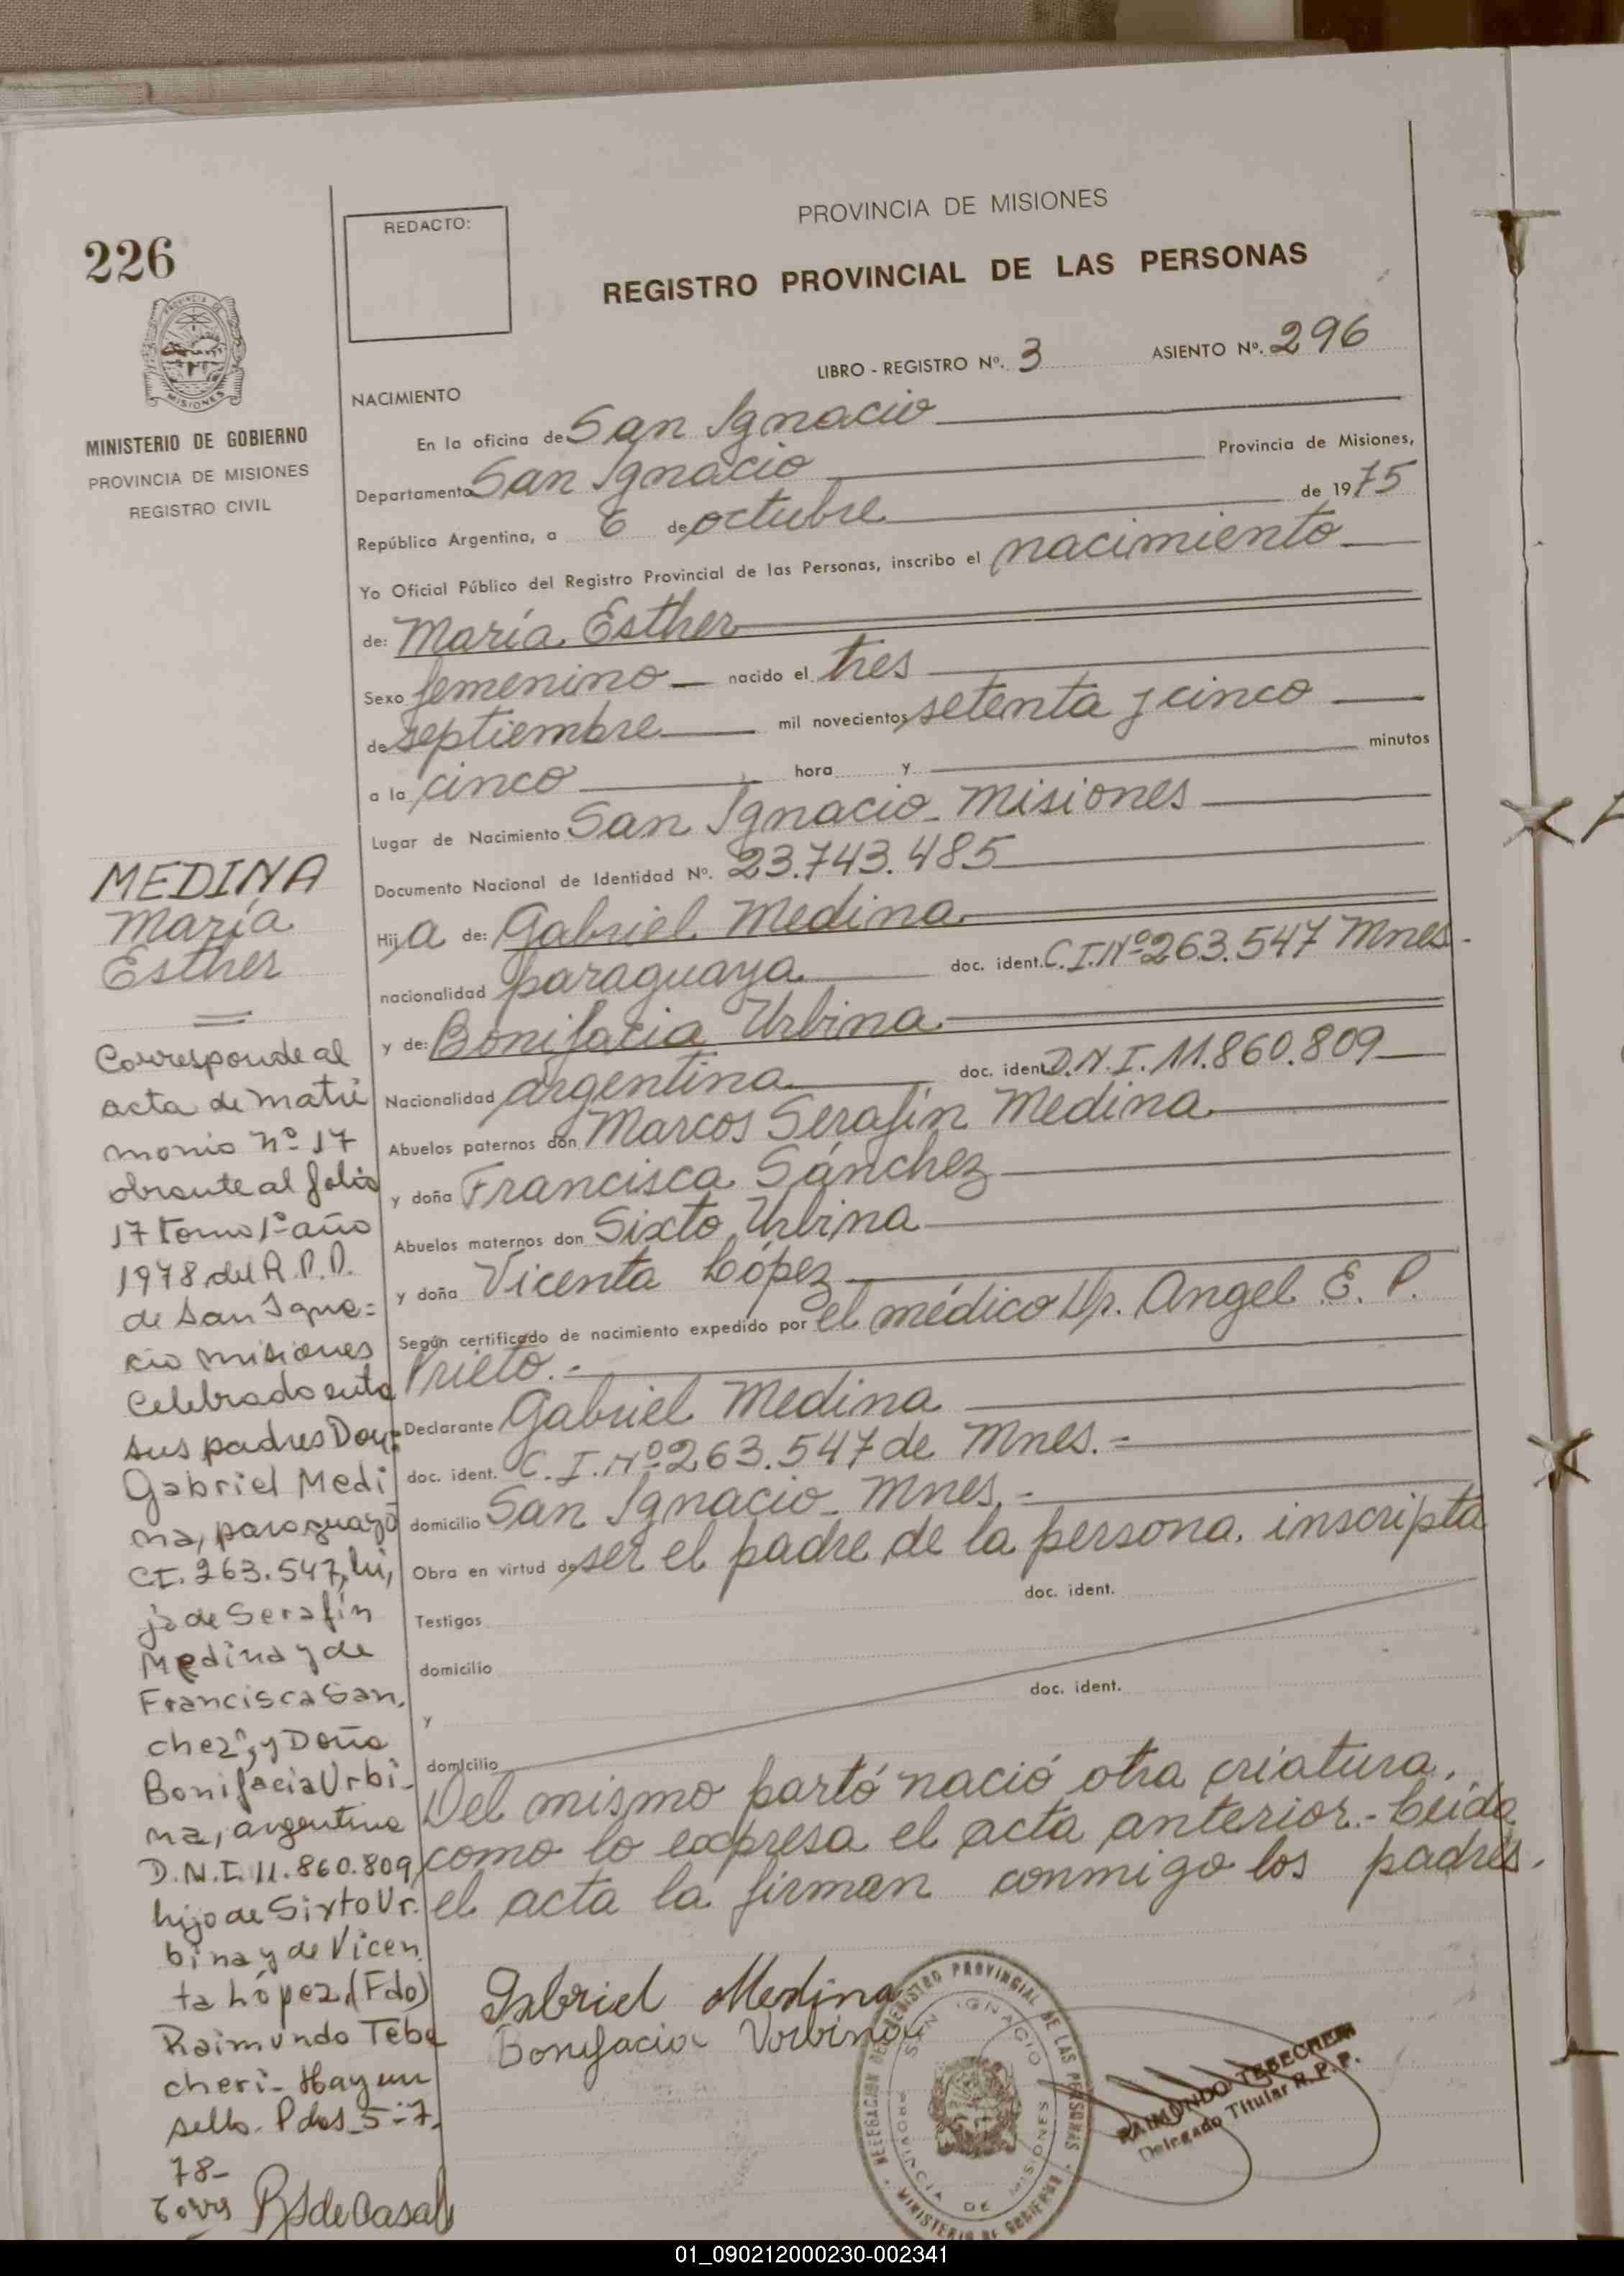 226
MINISTERIO DE GOBIERNO
PROVINCIA DE MISIONES
REGISTRO CIVIL
REDACTO:
PROVINCIA DE MISIONES
REGISTRO PROVINCIAL DE LAS PERSONAS
LIBRO - REGISTRO Nº. 3 ASIENTO Nº. 296
NACIMIENTO
En la oficina de San Ignacio
Departamento San Ignacio Provincia de Misiones,
República Argentina, a 6 de octubre de 1975
Yo Oficial Público del Registro Provincial de las Personas, inscribo el nacimiento
de: María Esther
Sexo femenino nacido el tres
de septiembre mil novecientos setenta y cinco
a la cinco hora y minutos
Lugar de Nacimiento San Ignacio - Misiones
Documento Nacional de Identidad Nº. 23.743.485
Hija de: Gabriel Medina
nacionalidad paraguaya doc. ident. C.I.Nº 263.547 Mnes.
y de: Bonifacia Urbina
Nacionalidad argentina doc. ident. D.N.I. 11.860.809
Abuelos paternos don Marcos Serafín Medina
y doña Francisca Sánchez
Abuelos maternos don Sixto Urbina
y doña Vicenta López
Según certificado de nacimiento expedido por el médico Dr. Angel E. P.
Prieto.-
Declarante Gabriel Medina
doc. ident. C.I.Nº 263.547 de Mnes.-
domicilio San Ignacio - Mnes.-
Obra en virtud de ser el padre de la persona inscripta
doc. ident.
Testigos
domicilio
doc. ident.
y
domicilio
Del mismo parto nació otra criatura,
como lo expresa el acta anterior.- Leída
el acta la firman conmigo los padres.
Gabriel Medina
Bonifacia Vurbina
DELEGACION DEL REGISTRO PROVINCIAL DE LAS PERSONAS
SAN IGNACIO
PROVINCIA DE MISIONES
MINISTERIO DE GOBIERNO
RAIMUNDO TEBECHERI
Delegado Titular R.P.P.
MEDINA
María
Esther
Corresponde al
acta de matri
monio nº 17
obrante al folio
17 tomo 1º año
1978 del R.P.P.
de San Igna=
cio misiones
Celebrado ente
sus padres Don=
Gabriel Medi
na, paraguayo
CI. 263.547, hi,
jo de Serafín
Medina y de
Francisca San,
chez", y Doña
Bonifacia Urbi-
na, argentina
D.N.I. 11.860.809,
hijo de Sixto Ur.
bina y de Vicen
ta López, (Fdo)
Raimundo Tebe
cheri - Hay un
sello. Pdas. 5-7-
78-
01_090212000230-002341